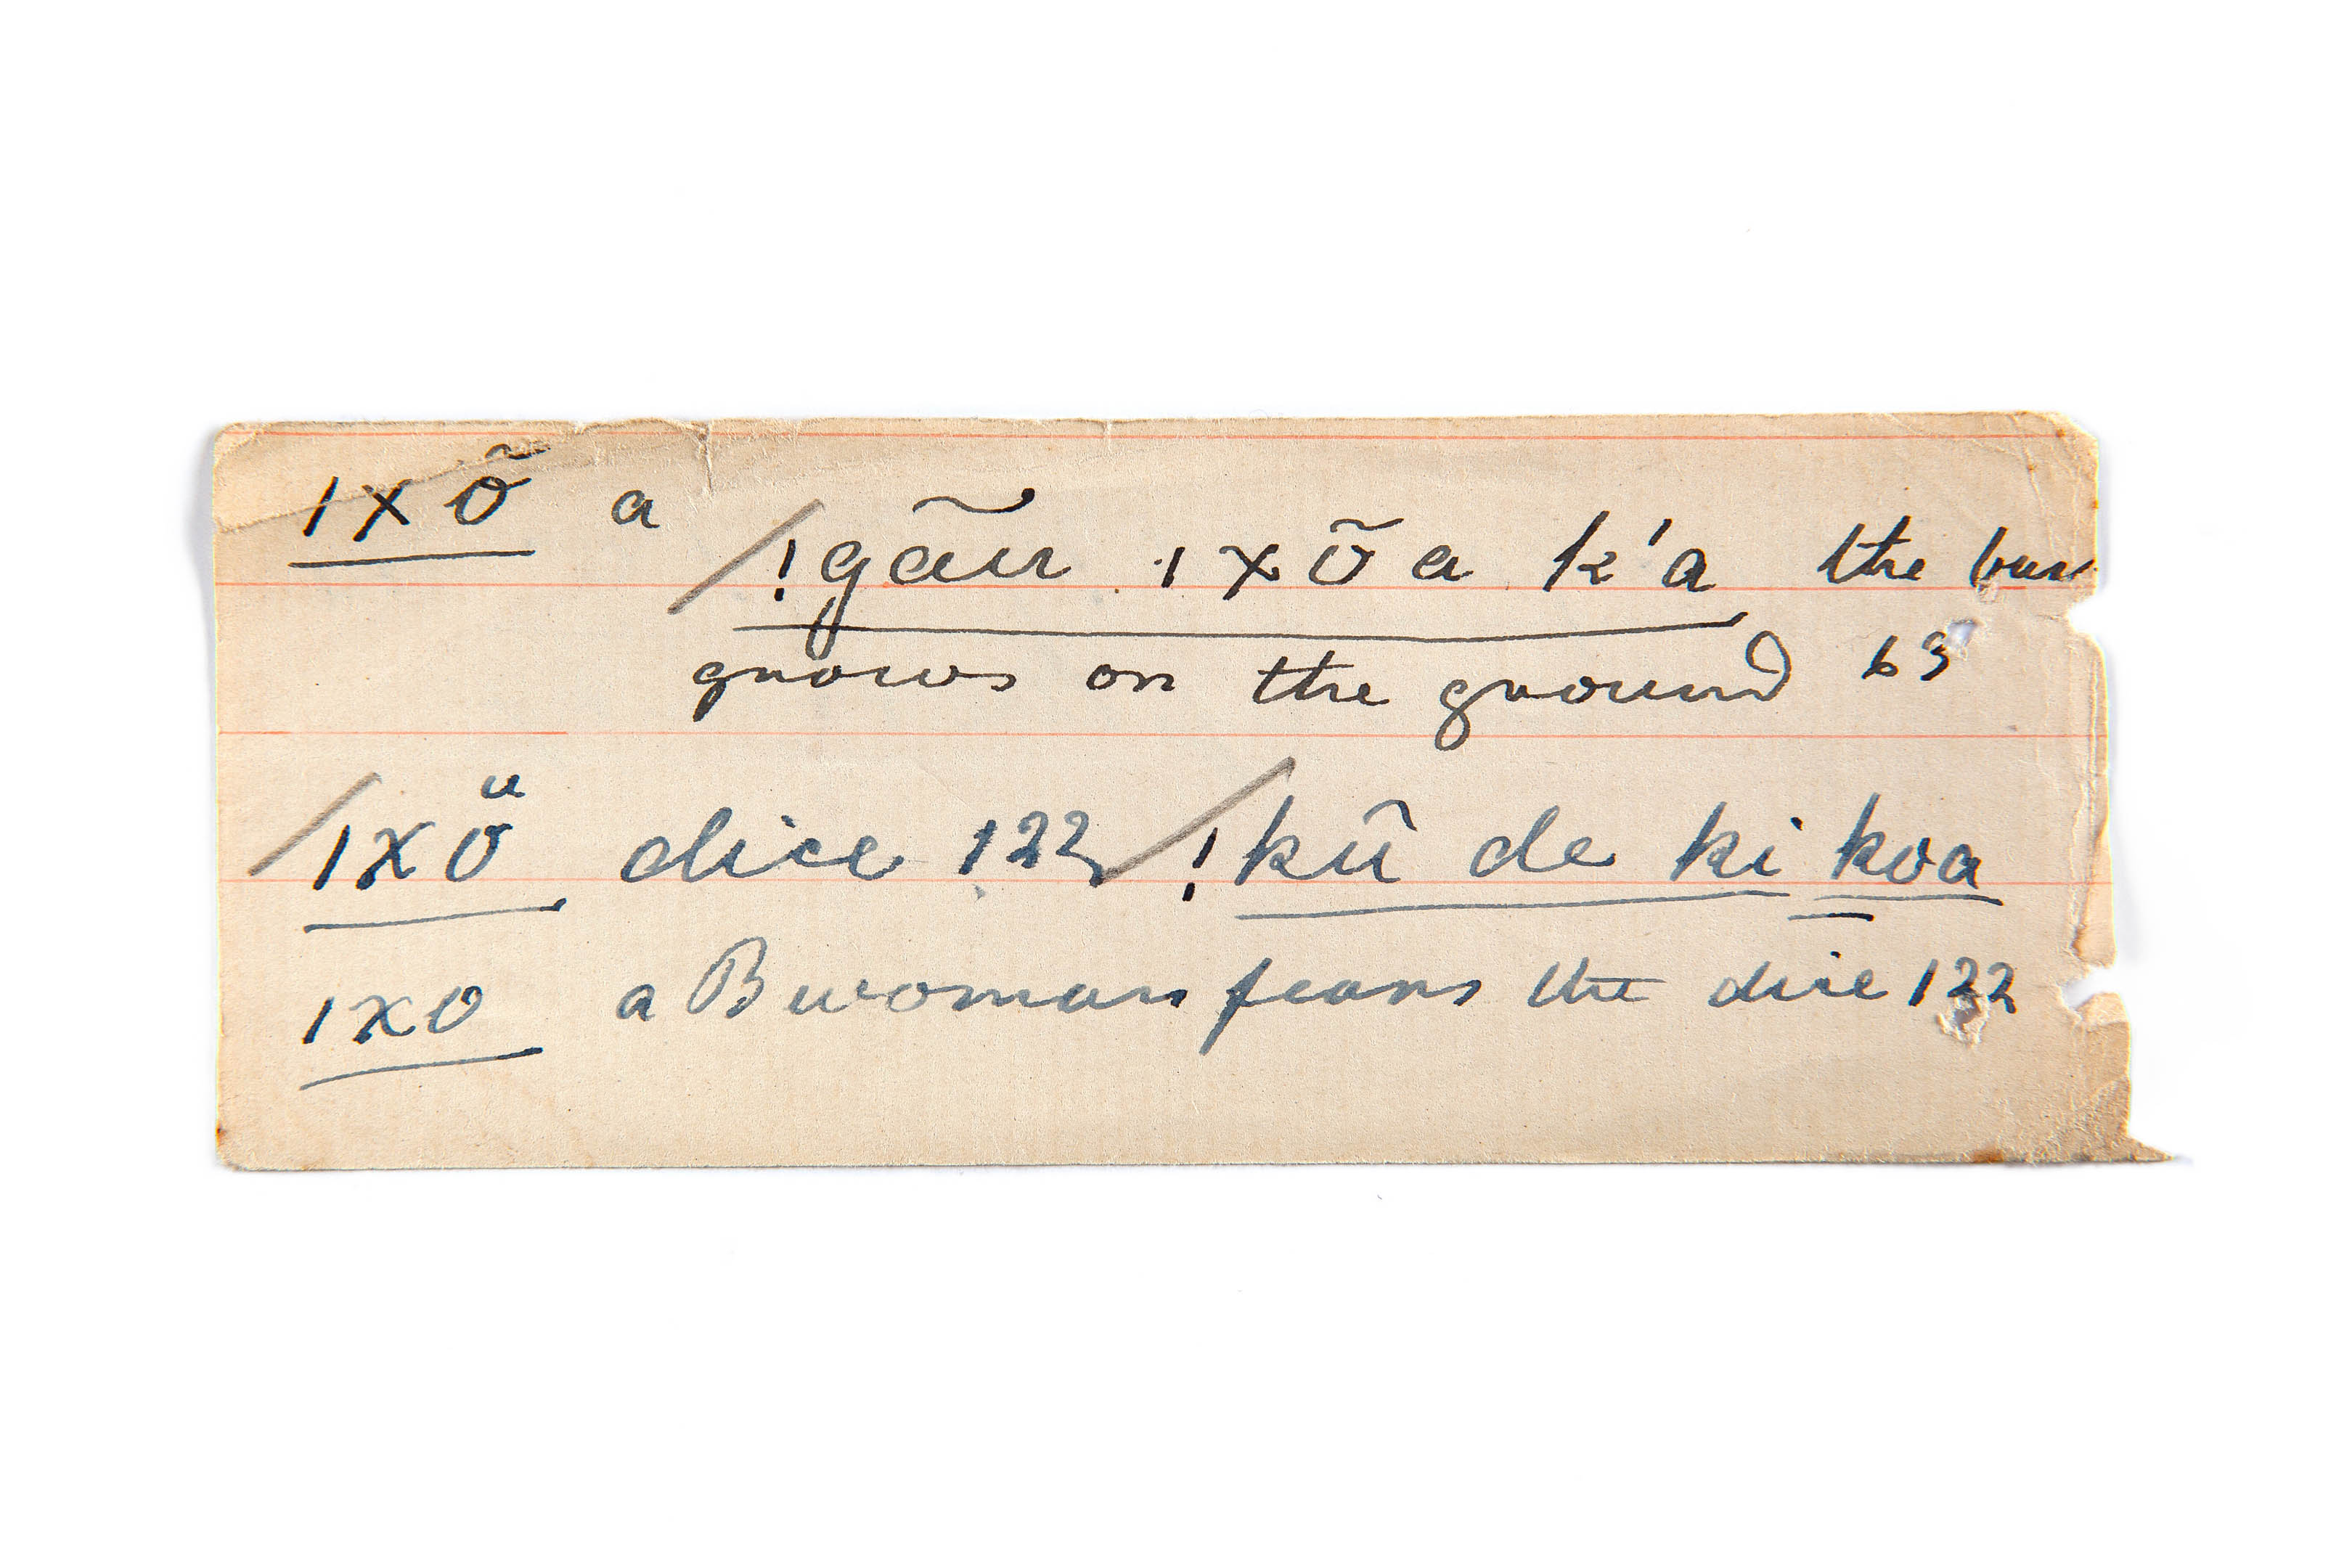 ǀxõ a
!gãu ǀxõa k'a the
grows on the ground 63
ǀxő dice 122 !kû de ki koa
ǀxo a B woman fears the dice 122